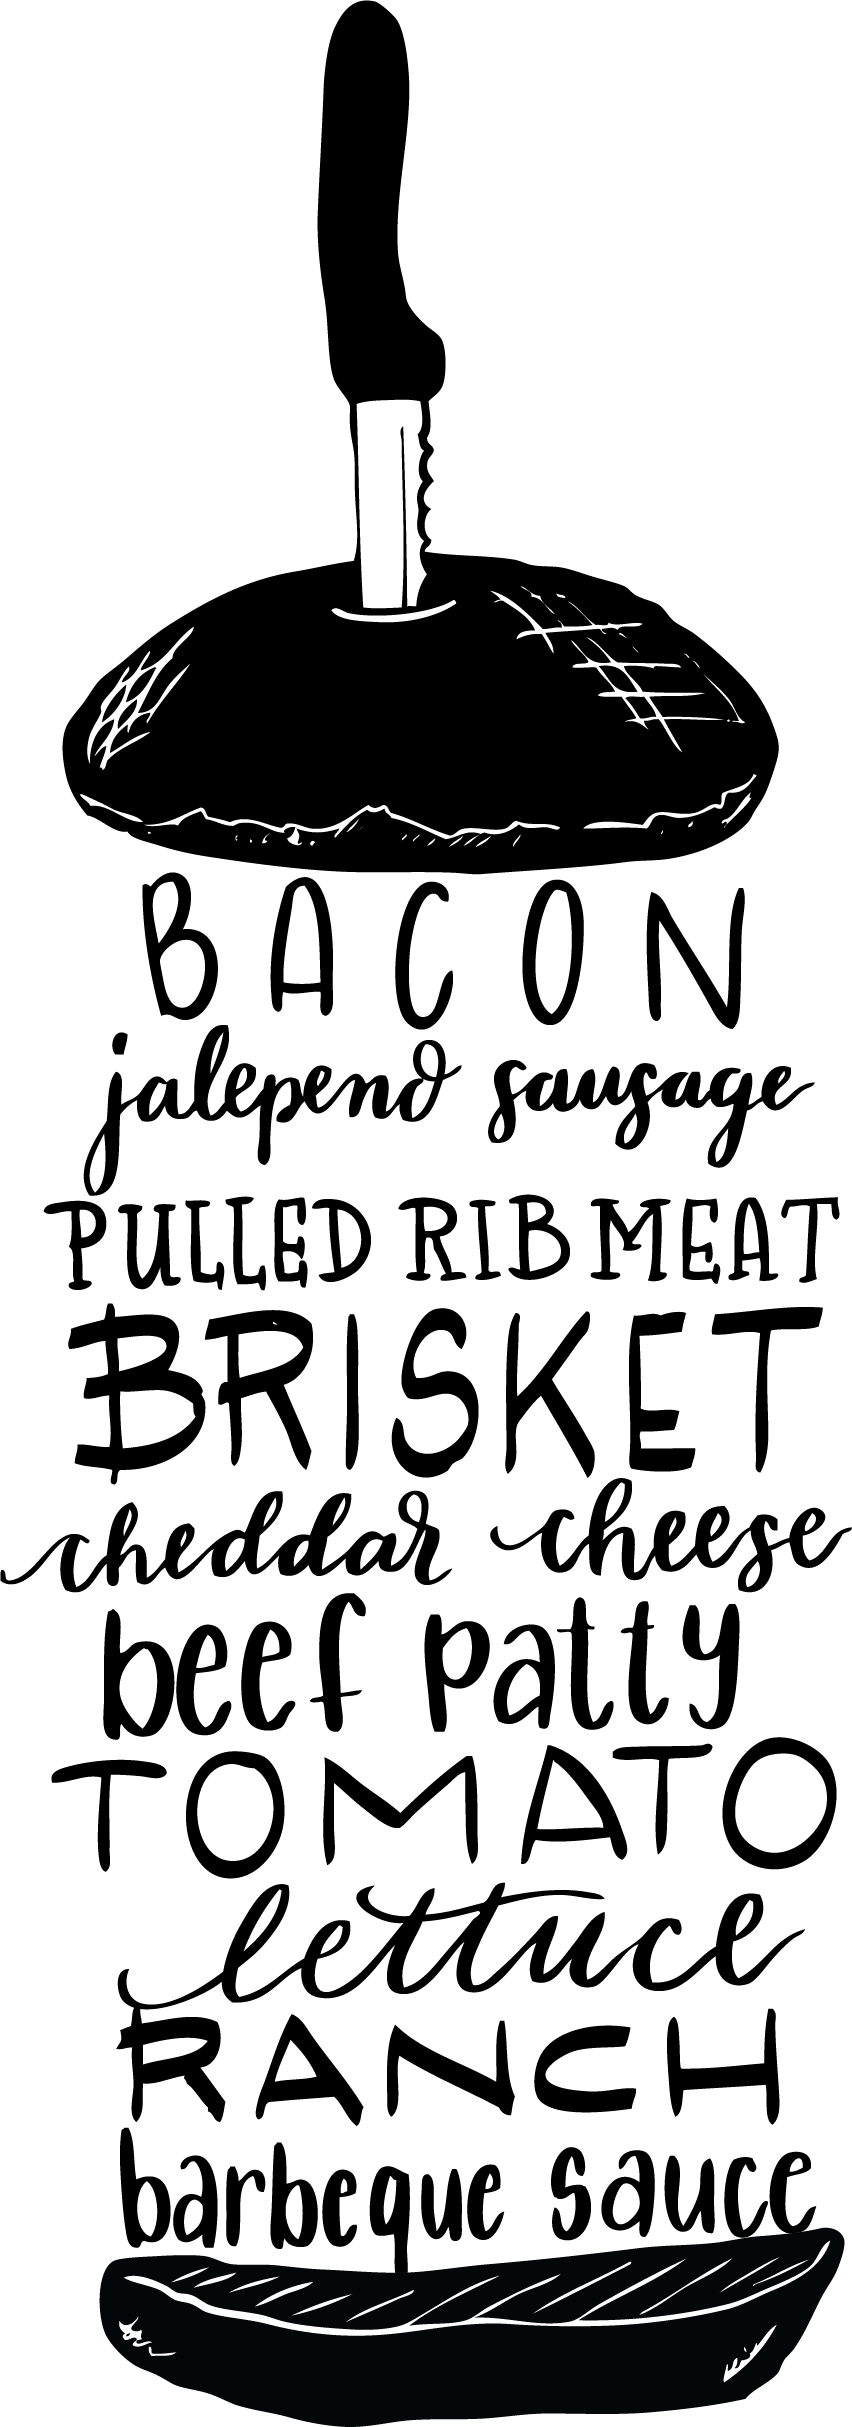 BACON
jalepeno sausage
PULLED RIB MEAT
BRISKET
cheddar cheese
beef patty
TOMATO
lettuce
RANCH
barbeque sauce